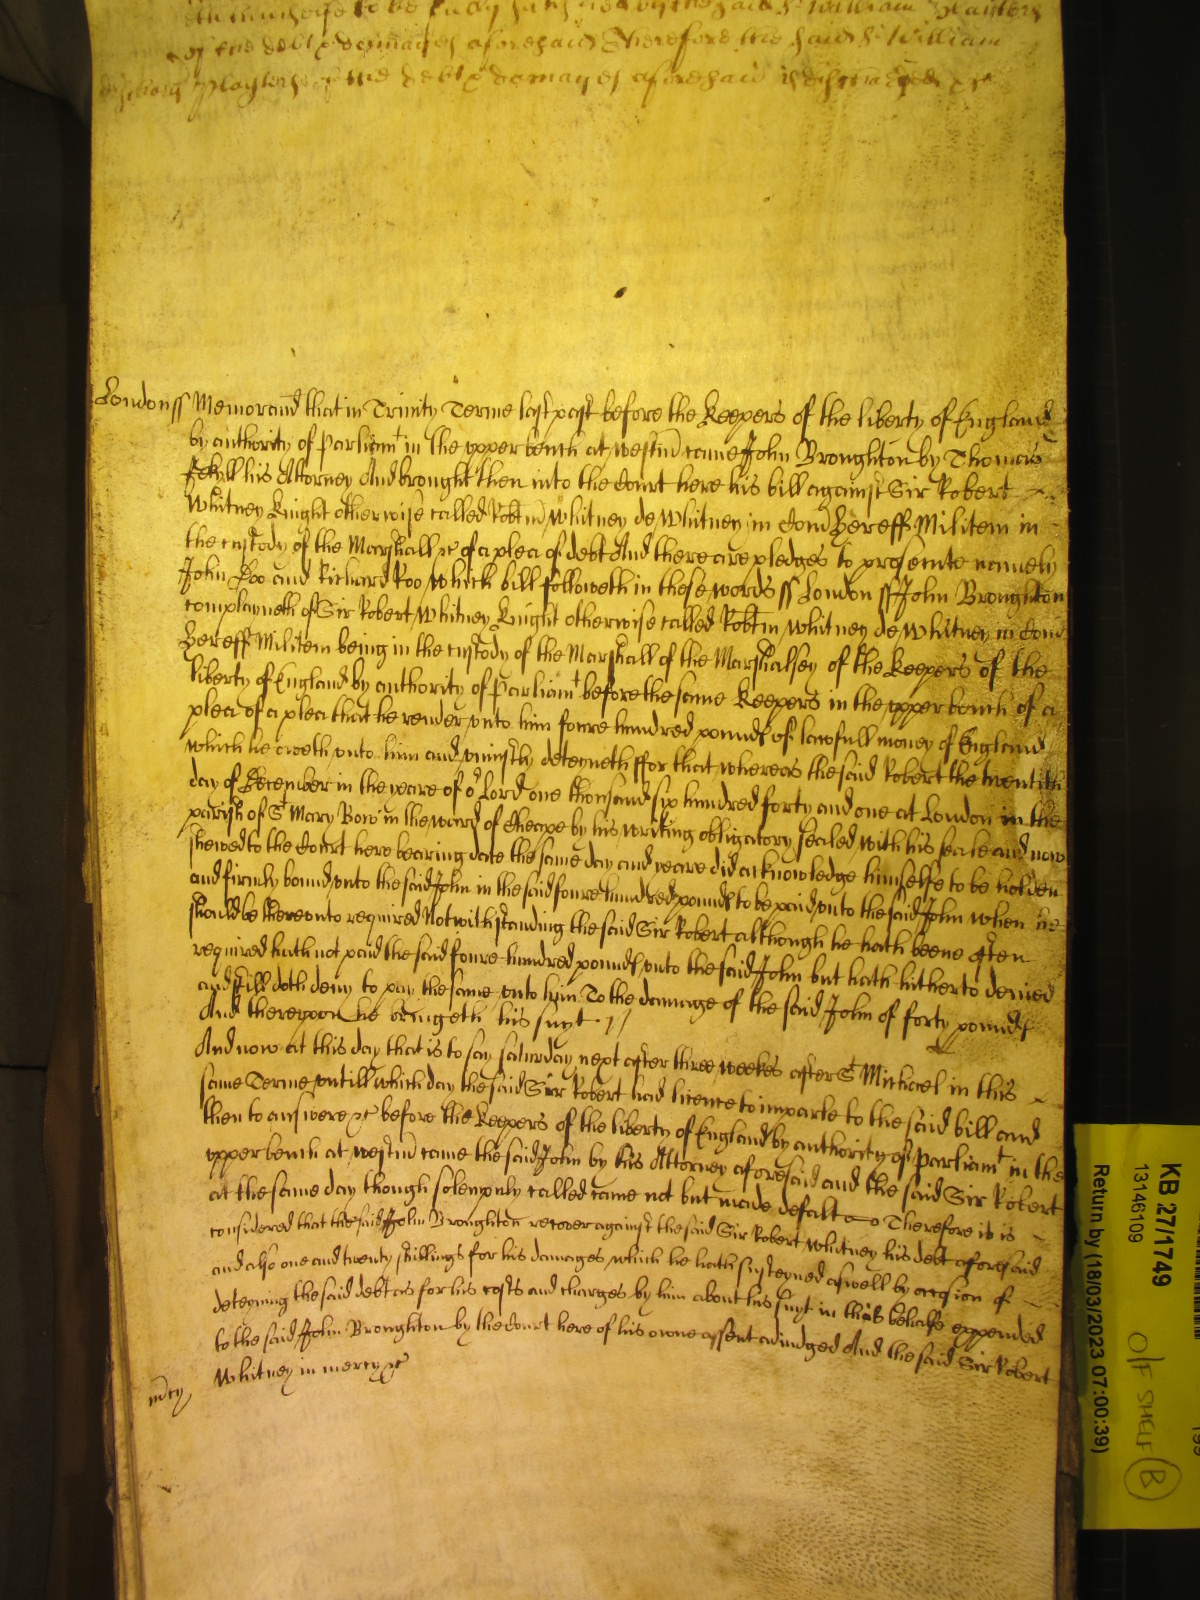 to be fully satisfied by the said Sr William Playters
of the debt & damages aforesaid Therefore the said Sr William
Playters of the debt & damages aforesaid is discharged &c
London ss Memorand that in Trinity Terme last past before the Keepers of the liberty of England
by authority of Parliamt in the vpper bench at Westm came John Broughton by Thomas
Jekyll his Attorney And brought then into the Court here his bill against Sir Robert
Whitney Knight otherwise called Robtm Whitney de Whitney in Com Hereff Militem in
the custody of the Marshall &c of a plea of debt And there are pledges to prosecute namely
John Doo and Richard Roo which bill followeth in these words ss London ss John Broughton
complayneth of Sir Robert Whitney Knight otherwise called Robtm Whitney de Whitney in Com
Hereff Militem being in the custody of the Marshall of the Marshalsey of the Keepers of the
liberty of England by authority of Parliamt before the same Keepers in the vpper bench of a
plea of a plea that he render vnto him foure hundred pounds of lawfull money of England
which he oweth vnto him and vniustly deteyneth ffor that whereas the said Robert the twentith
day of December in the yeare of or Lord one thousand six hundred forty and one at London in the
parish of St Mary Bow in the ward of Cheape by his writing obligatory sealed with his seale and now
shewed to the Court here bearing date the same day and yeare did acknowledge himselfe to be holden
and firmly bound vnto the said John in the said foure hundred pounds to be paid vnto the said John when he
should be therevnto required Notwithstanding the said Sir Robert although he hath beene often
required hath not paid the said foure hundred pounds vnto the said John but hath hitherto denied
and still doth deny to pay the same vnto him To the damage of the said John of forty pounds
And therevpon he bringeth his suyt
And now at this day that is to say saturday next after three weekes after St Michael in this
same Terme vntill which day the said Sir Robert had licence to imparle to the said bill and
then to answere &c before the Keepers of the liberty of England by authority of Parliamt in the
vpper bench at Westm came the said John by his Attorney aforesaid and the said Sir Robert
at the same day though solempnly called came not but made defalt Therefore it is
considered that the said John Broughton recover against the said Sir Robert Whitney his debt aforesaid
and also one and twenty shillings for his damages which he hath susteyned aswell by occasion of
deteyning the said debt as for his costs and charges by him about his suyt in this behalfe expended
to the said John Broughton by the Court here of his owne assent adiudged And the said Sir Robert
Whitney in mercy &c
mcy
KB 27/1749
13146109
Return by (18/03/2023 07:00:39)
O/F SHELF B